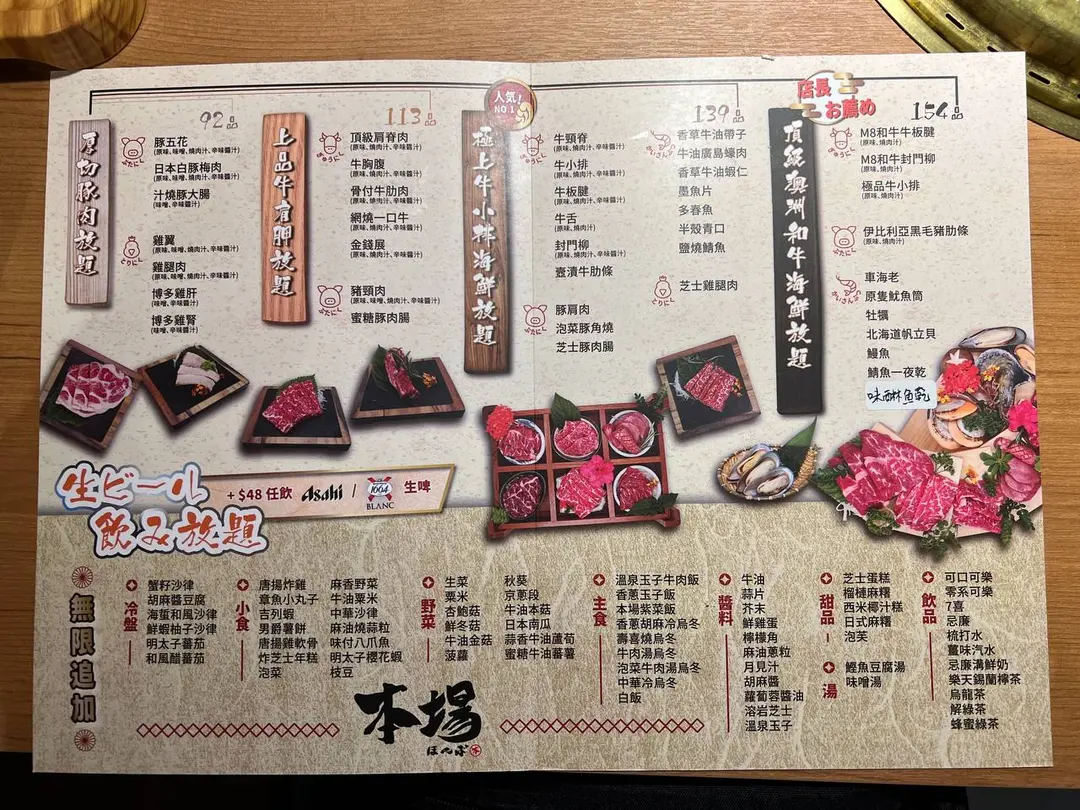 92品
厚切豚肉放題
豚五花
(原味、味噌、燒肉汁、辛味醬汁)
日本白豚梅肉
(原味、味噌、燒肉汁、辛味醬汁)
汁燒豚大腸
(味噌、辛味醬汁)
ぶたにし
雞翼
(原味、味噌、燒肉汁、辛味醬汁)
雞腿肉
(原味、味噌、燒肉汁、辛味醬汁)
博多雞肝
(味噌、辛味醬汁)
博多雞腎
(味噌、辛味醬汁)
とりにし
113品
上品牛肩胛放題
頂級肩脊肉
(原味、燒肉汁、辛味醬汁)
牛胸腹
(原味、燒肉汁、辛味醬汁)
骨付牛肋肉
(原味、燒肉汁、辛味醬汁)
網燒一口牛
(原味、燒肉汁、辛味醬汁)
金錢展
(原味、燒肉汁、辛味醬汁)
ぎゅうにし
豬頸肉
(原味、味噌、燒肉汁、辛味醬汁)
蜜糖豚肉腸
ぶたにし
人気!
NO.1
139品
極上牛小排海鮮放題
牛頸脊
(原味、燒肉汁、辛味醬汁)
牛小排
(原味、燒肉汁、辛味醬汁)
牛板腱
(原味、燒肉汁、辛味醬汁)
牛舌
(原味、燒肉汁)
封門柳
(原味、燒肉汁、辛味醬汁)
壼漬牛肋條
ぎゅうにし
豚肩肉
泡菜豚角燒
芝士豚肉腸
ぶたにし
香草牛油帶子
牛油廣島蠔肉
香草牛油蝦仁
墨魚片
多春魚
半殼青口
鹽燒鯖魚
かいさんぶつ
芝士雞腿肉
とりにし
店長
お薦め
154品
頂級澳洲和牛海鮮放題
M8和牛牛板腱
(原味、燒肉汁)
M8和牛封門柳
(原味、燒肉汁)
極品牛小排
(原味、燒肉汁)
ぎゅうにし
伊比利亞黑毛豬肋條
(原味、燒肉汁、辛味醬汁)
ぶたにし
車海老
原隻魷魚筒
牡蠣
北海道帆立貝
鰻魚
鯖魚一夜乾
味醂魚乾
かいさんぶつ
生ビール
飲み放題
+ $48 任飲 Asahi / 1664 BLANC 生啤
無限追加
冷盤
蟹籽沙律
胡麻醬豆腐
海蜇和風沙律
鮮蝦柚子沙律
明太子蕃茄
和風醋蕃茄
小食
唐揚炸雞
章魚小丸子
吉列蝦
男爵薯餅
唐揚雞軟骨
炸芝士年糕
泡菜
麻香野菜
牛油粟米
中華沙律
麻油燒蒜粒
味付八爪魚
明太子櫻花蝦
枝豆
野菜
生菜
粟米
杏鮑菇
鮮冬菇
牛油金菇
菠蘿
秋葵
京蔥段
牛油本菇
日本南瓜
蒜香牛油蘆荀
蜜糖牛油蕃薯
主食
溫泉玉子牛肉飯
香蔥玉子飯
本場紫菜飯
香蔥胡麻冷烏冬
壽喜燒烏冬
牛肉湯烏冬
泡菜牛肉湯烏冬
中華冷烏冬
白飯
醬料
牛油
蒜片
芥末
鮮雞蛋
檸檬角
麻油蔥粒
月見汁
胡麻醬
蘿蔔蓉醬油
溶岩芝士
溫泉玉子
甜品
芝士蛋糕
榴槤麻糬
西米椰汁糕
日式麻糬
泡芙
湯
鰹魚豆腐湯
味噌湯
飲品
可口可樂
零系可樂
7喜
忌廉
梳打水
薑味汽水
忌廉溝鮮奶
樂天錫蘭檸茶
烏龍茶
解綠茶
蜂蜜綠茶
本場
ほんば